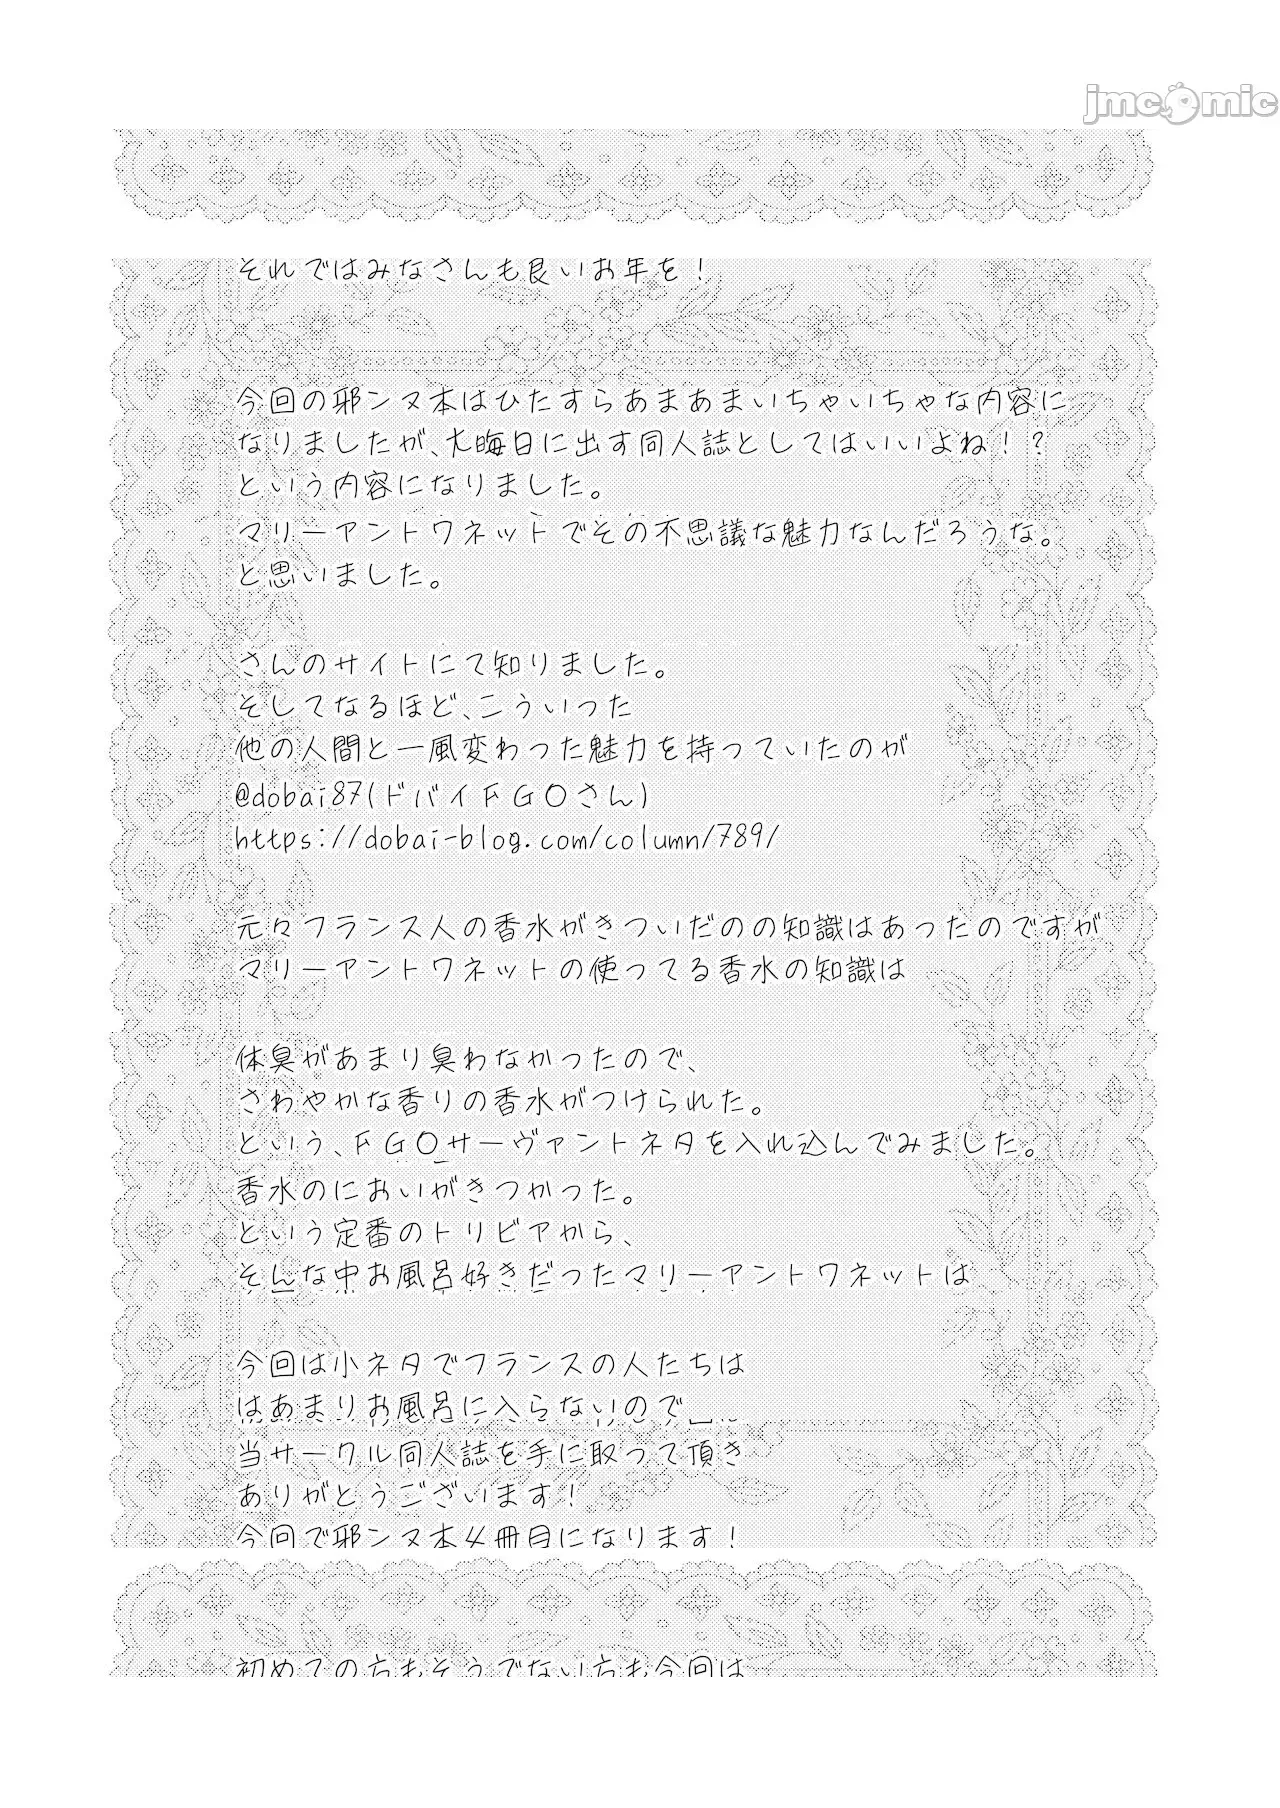 jmcomic
それではみなさんも良いお年を！
今回の邪ンヌ本はひたすらあまあまいちゃいちゃな内容に
なりましたが、大晦日に出す同人誌としてはいいよね！？
という内容になりました。
マリーアントワネットでその不思議な魅力なんだろうな。
と思いました。
さんのサイトにて知りました。
そしてなるほど、こういった
他の人間と一風変わった魅力を持っていたのが
@dobai87(ドバイＦＧＯさん)
https://dobai-blog.com/column/789/
元々フランス人の香水がきついだのの知識はあったのですが
マリーアントワネットの使ってる香水の知識は
体臭があまり臭わなかったので、
さわやかな香りの香水がつけられた。
という、ＦＧＯサーヴァントネタを入れ込んでみました。
香水のにおいがきつかった。
という定番のトリビアから、
そんな中お風呂好きだったマリーアントワネットは
今回は小ネタでフランスの人たちは
はあまりお風呂に入らないので
当サークル同人誌を手に取って頂き
ありがとうございます！
今回で邪ンヌ本４冊目になります！
初めての方もそうでない方も今回は